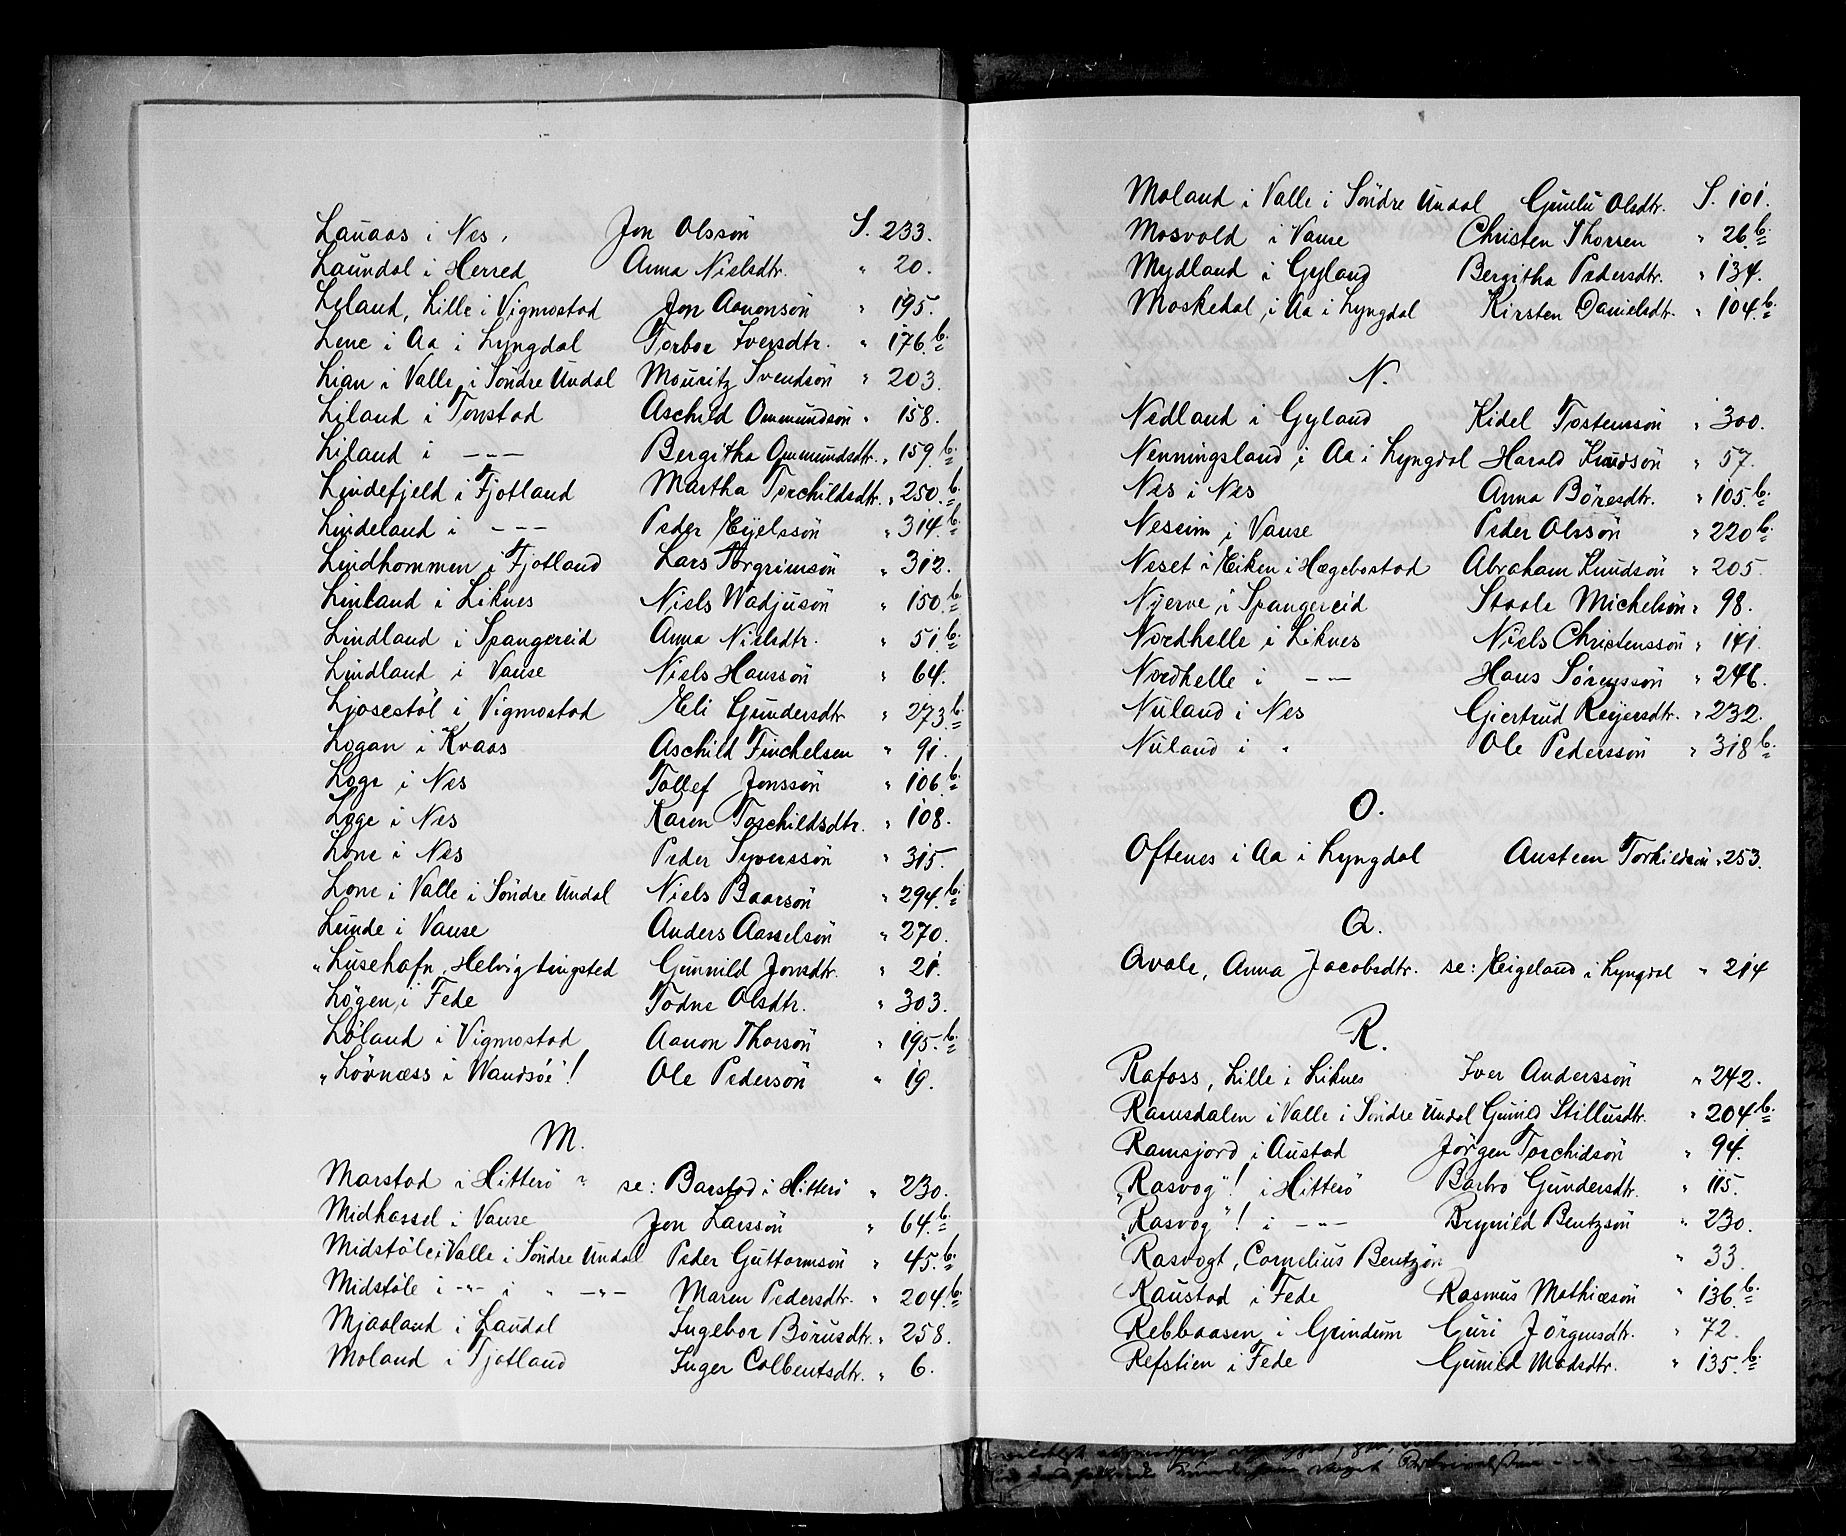 Lauaas i Nes, Jon Olssön S. 233.
Laudal i Herred Anna Nielsdtr. " 20.
Leland, Lille i Vigmostad Jon Aanonsön " 195.
Lene i Aa i Lyngdal Torbor Iversdtr. " 176.b.
Lian i Valle i Söndre Undal Mouritz Svendsön " 203.
Liland i Tonstad Aschild Ommundsön " 158.
Liland i -"- Bergitha Ommundsdtr. " 159.b.
Lindefjeld i Fjotland Martha Torchildsdtr. " 250.b.
Lindeland i -"- Peder Eyelssön " 314.b.
Lindhommen i Fjotland Lars Torgrimsön " 312.
Linland i Liknes Niels Wadjusön " 150.b.
Lindland i Spangereid Anna Nielsdtr. " 51.b.
Lindland i Vanse Niels Hanssön " 64.
Ljosestöl i Vigmostad Eli Gundersdtr " 273.b.
Logan i Kvaas Aschild Finchelsen " 91.
Loge i Nes Tollef Jonssön " 106.b.
Loge i Nes Karen Torchildsdtr. " 108.
Lone i Nes Peder Syverssön " 315.
Lone i Valle i Söndre Undal Niels Baarsön " 294.b.
Lunde i Vanse Anders Aasselsön " 270.
"Lusehafn, Helvig tingsted Gunnild Jonsdtr. " 21.
Lögen i Fede Todne Olsdtr. " 303.
Löland i Vigmostad Aanon Thorsön " 195.b.
"Lövnæss i Wandsöe"! Ole Pedersön " 19.
M.
Marstad i Hitterö " se: Barstad i Hitterö " 230.
Midhassel i Vanse Jon Larssön " 64.b.
Midstöle i Valle i Söndre Undal Peder Guttormsön " 45.b.
Midstöle i -"- i " -"- Maren Pedersdtr. " 204.b.
Mjaaland i Laudal Ingebor Börusdtr. " 258.
Moland i Fjotland Inger Colbentsdtr. " 6.
Moland i Valle i Söndre Undal Gunlu Olsdtr. S. 101.
Mosvold i Vanse Christen Thorsen " 26.b.
Mydland i Gyland Bergitha Pedersdtr. " 134.
Moskedal, i Aa i Lyngdal Kirsten Danielsdtr. " 104.b.
N.
Nedland i Gyland Kidel Tostenssön " 300.
Nenningsland i Aa i Lyngdal Harald Knudsön " 57.
Nes i Nes Anna Böresdtr. " 105.b.
Neseim i Vanse Peder Olssön " 220.b.
Neset i Eiken i Hægebostad Abraham Knudsön " 205.
Njerve i Spangereid Staale Michelsön " 98.
Nordhelle i Liknes Niels Christenssön " 141.
Nordhelle i -"- Hans Sörenssön " 246.
Nuland i Nes Giertrud Reyersdtr. " 232.
Nuland i " Ole Pederssön " 318.b.
O.
Oftenes i Aa i Lyngdal Austeen Torkildsön " 253.
Q.
Qvale, Anna Jacobsdtr. se: Eigeland i Lyngdal " 214
R.
Rafoss, Lille i Liknes Iver Anderssön " 242.
Ramsdalen i Valle i Söndre Undal Gunild Stillusdtr. " 204.b.
Ramsjord i Austad Jörgen Torchidsön " 94.
"Rasvog"! i Hitterö Barbro Gundersdtr. " 115.
"Rasvog"! i -"- Brynild Bentzsön " 230.
Rasvogt, Cornelius Bentzön " 33.
Raustad i Fede Rasmus Mathiæsön " 136.b.
Rebbaasen i Grindum Guri Jörgensdtr. " 72.
Refstien i Fede Gunild Madsdtr. " 135.b.